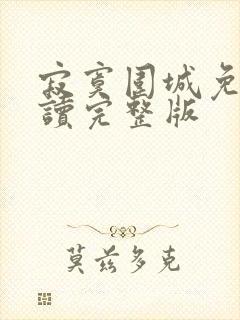 寂寞围城免
讀完整版
莫兹多克